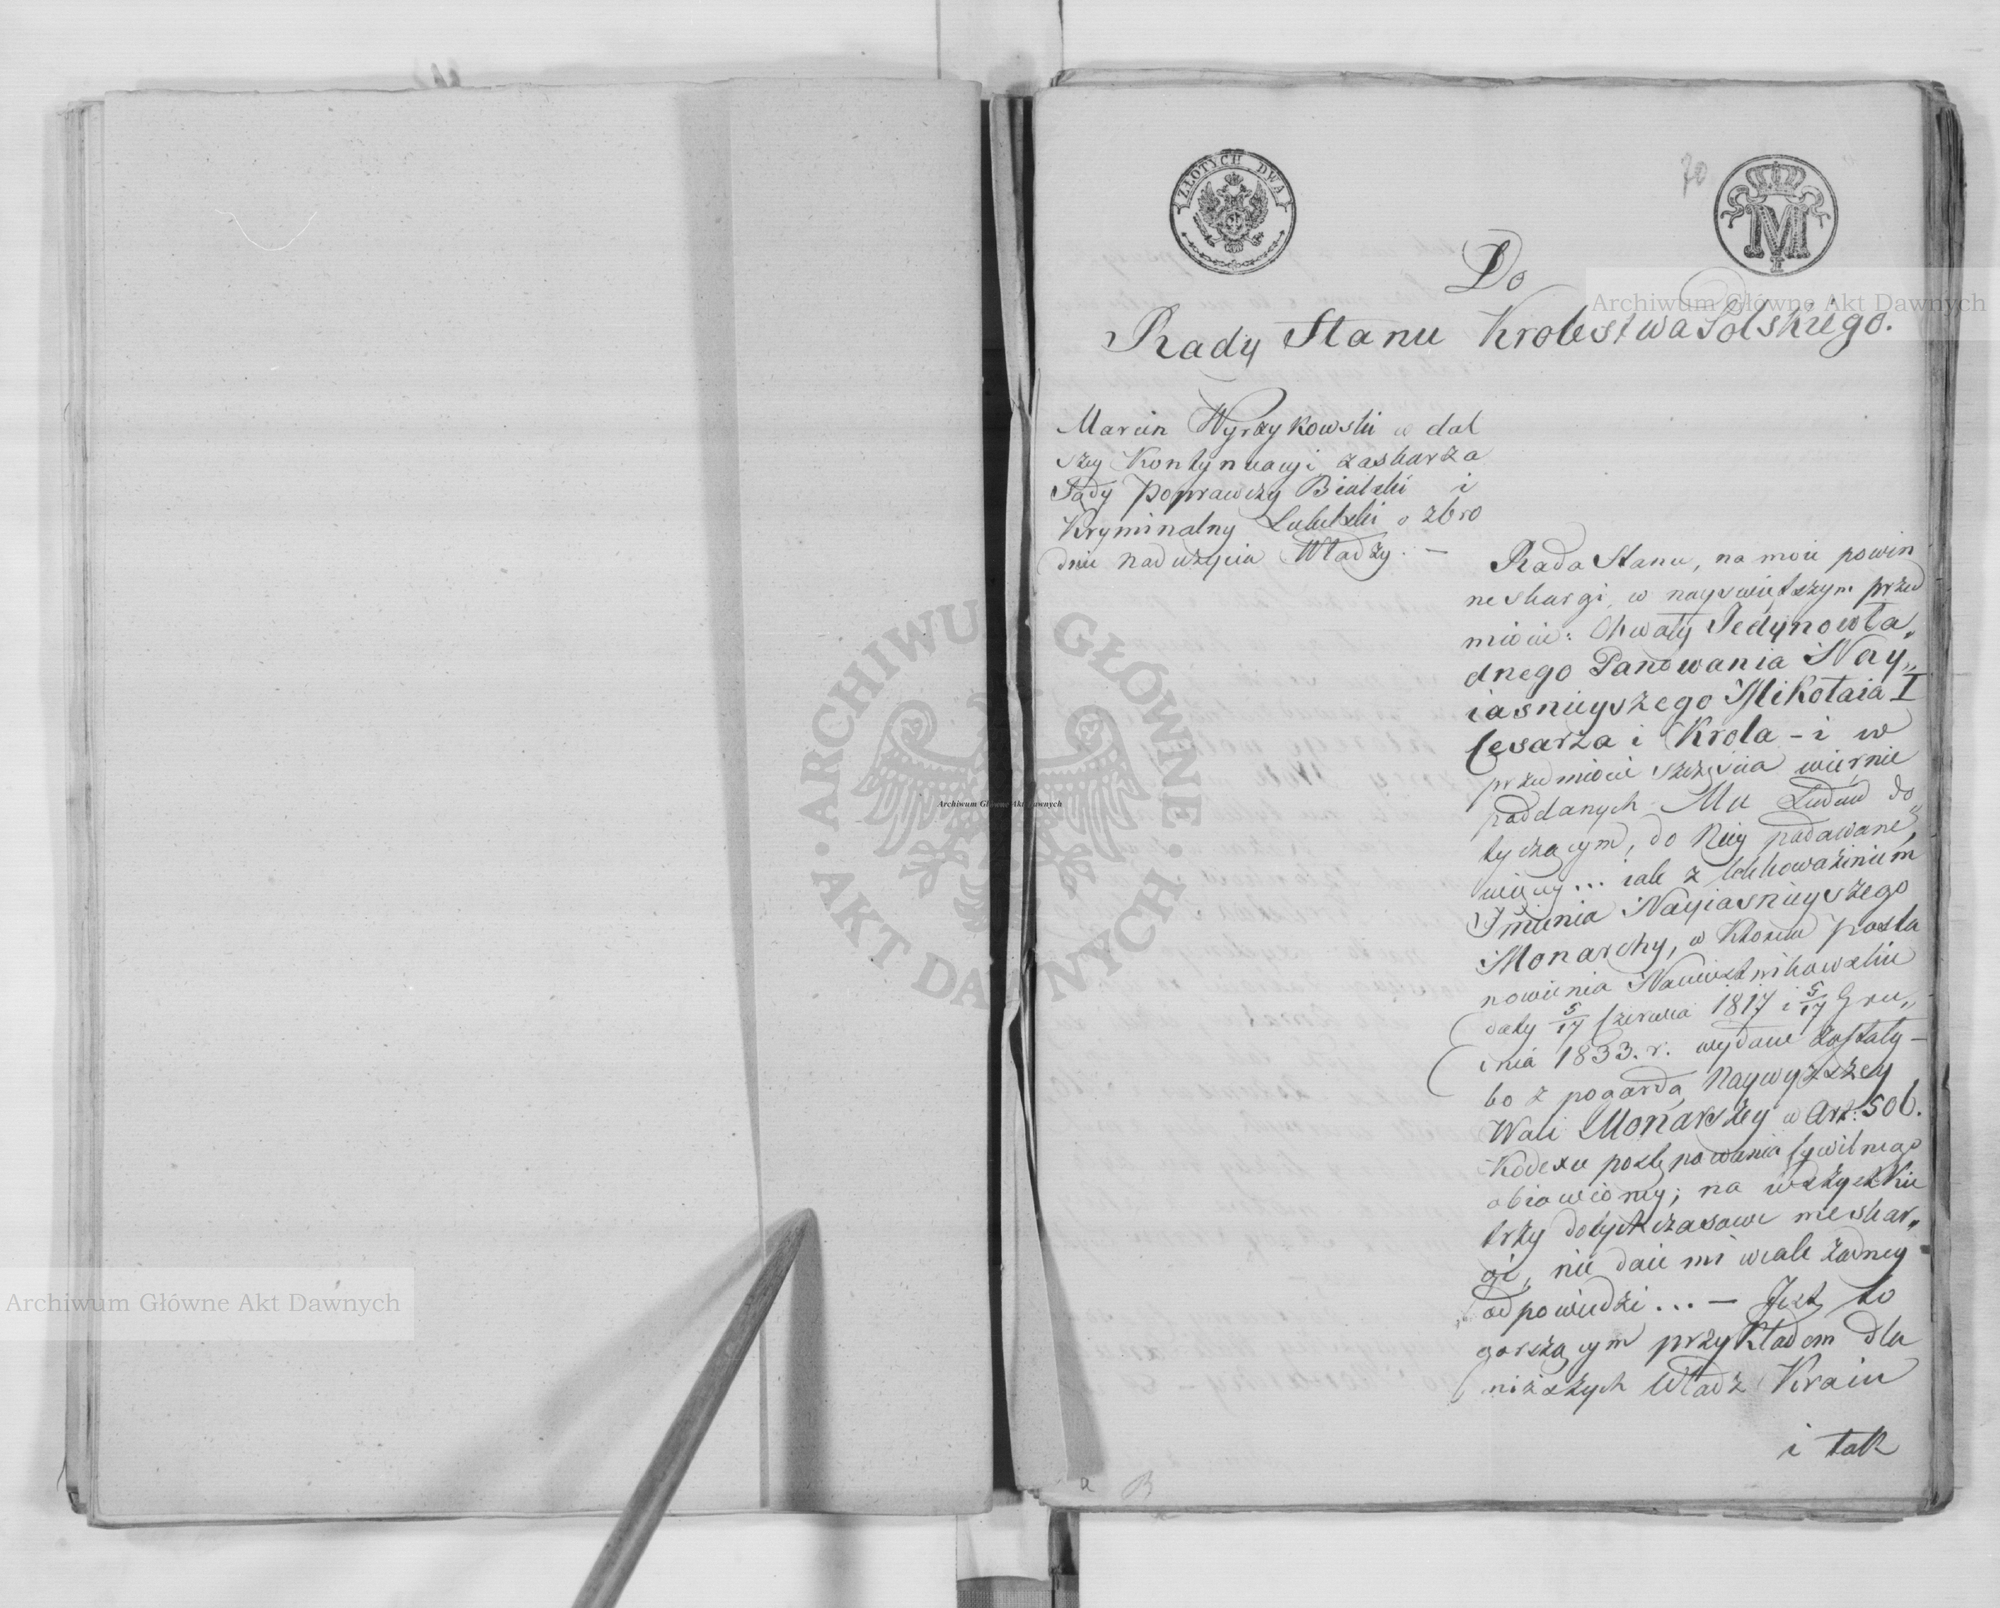 ZŁOTYCH DWA
70
M
I
Do
Rady Stanu Krolestwa Polskiego.
Marcin Wyrzykowski w dal
szey Kontynuacyi zaskarza
Sądy Poprawczy Bialski i
Kryminalny Lubelski o zbro
dnie nadużycia Władzy. —
Rada Stanu, na moie powin
ne skargi, w nayświętszym przed
miocie: Chwały Jedynowła„
dnego Panowania Nay„
iaśnieyszego Mikołaia I
Cesarza i Krola – i w
przedmiocie szczęścia wiernie
poddanych Mu Ludów do„
tyczącym, do Niey podawane,
więcey... iak z
Imienia Nayiaśnieyszego
Monarchy, w Którem Posta
nowienia Namiestnikowskie
daty 5/17 Czerwca 1817 i 5/17 Gru„
dnia 1833. r. wydane zostały –
bo z pogardą Naywyższey
Woli Monarszey w Art: 506.
Kodexu postępowania Cywilnego
obiawioney; na wszystkie
trzy dotychczasowe me skar„
gi, nie daie mi wcale żadney
odpowiedzi... — Jest to
gorszącym przykładem dla
niższych Władz Kraiu
i tak
Archiwum Główne Akt Dawnych
Archiwum Główne Akt Dawnych
Archiwum Główne Akt Dawnych
ARCHIWUM GŁÓWNE AKT DAWNYCH